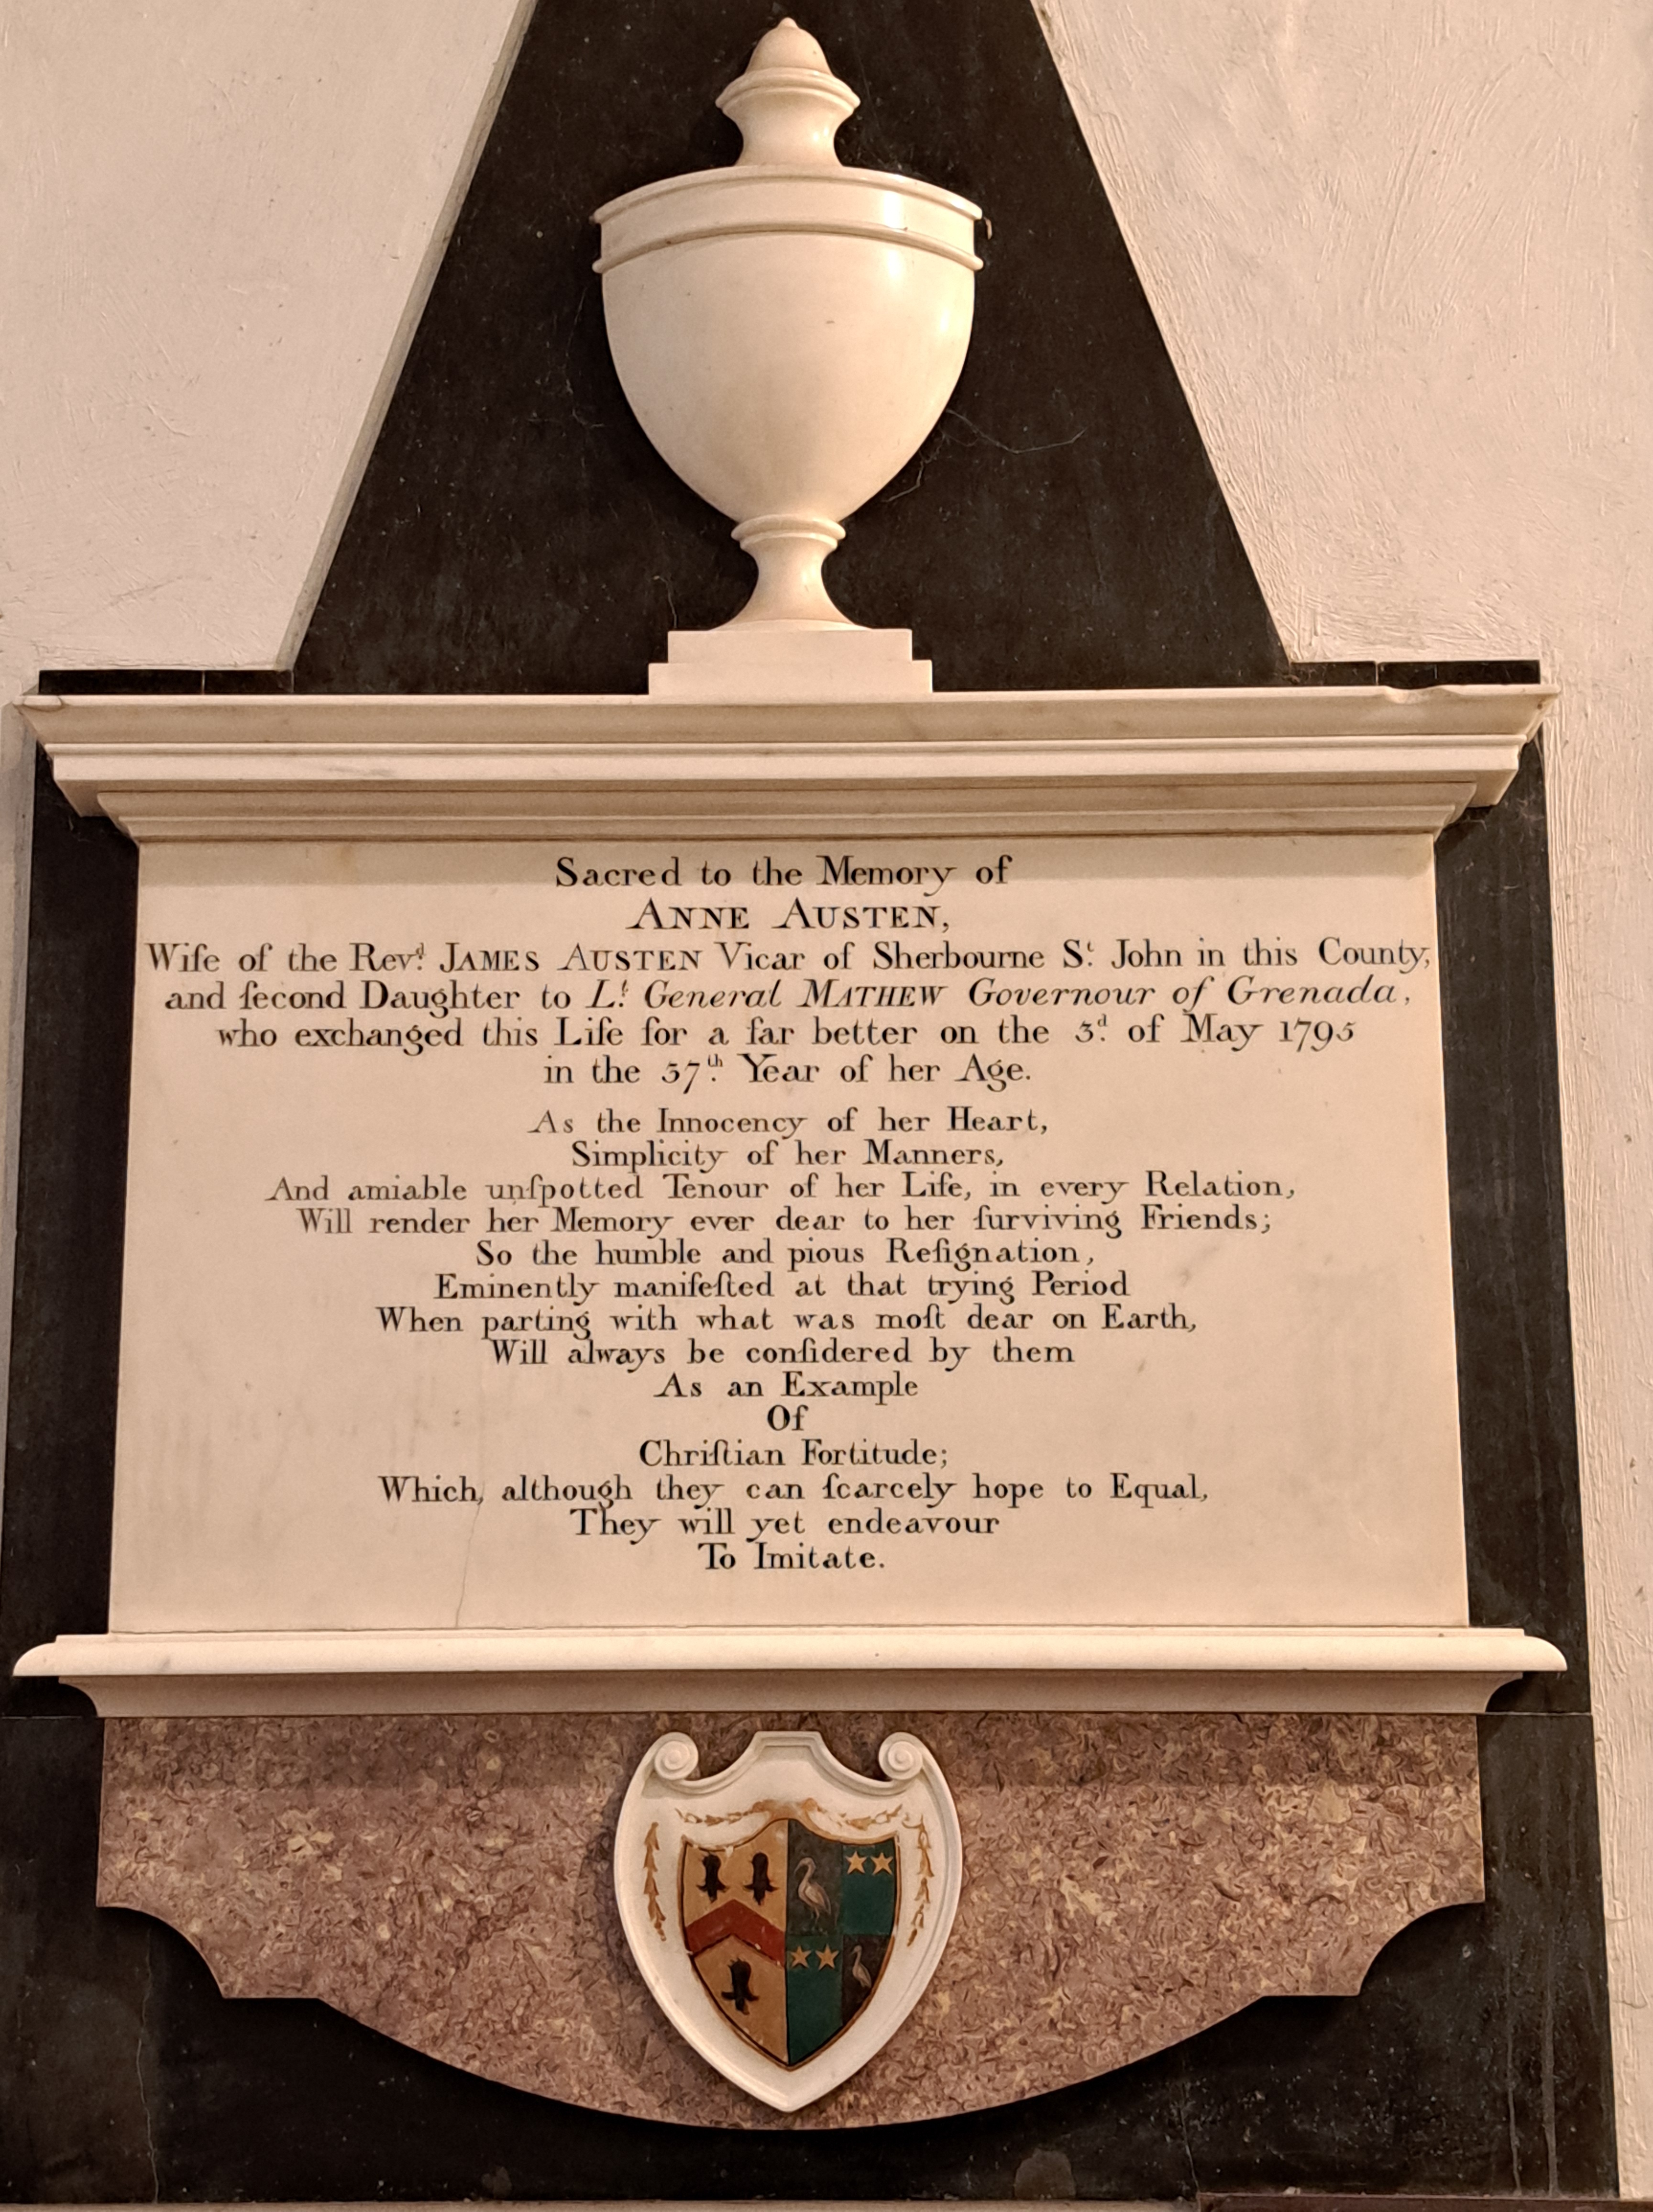 Sacred to the Memory of
ANNE AUSTEN,
Wife of the Revᵈ. JAMES AUSTEN Vicar of Sherbourne Sᵗ. John in this County,
and ſecond Daughter to Lᵗ. General MATHEW Governour of Grenada,
who exchanged this Life for a far better on the 3ᵈ. of May 1795
in the 37ᵗʰ. Year of her Age.
As the Innocency of her Heart,
Simplicity of her Manners,
And amiable unſpotted Tenour of her Life, in every Relation,
Will render her Memory ever dear to her ſurviving Friends;
So the humble and pious Reſignation,
Eminently manifeſted at that trying Period
When parting with what was moſt dear on Earth,
Will always be conſidered by them
As an Example
Of
Chriſtian Fortitude;
Which, although they can ſcarcely hope to Equal,
They will yet endeavour
To Imitate.